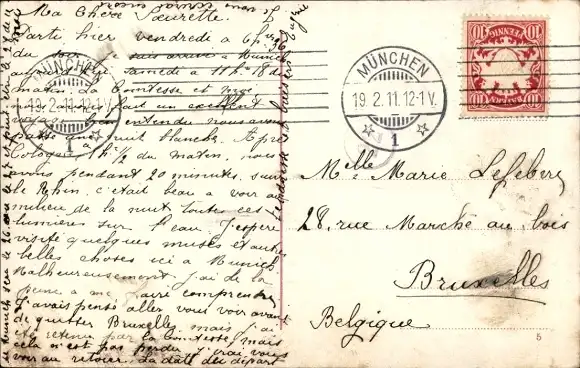 Ma Chère Sœurette.
Parti hier vendredi a 6h
du je suis arrivé a Munich
aujourd'hui samedi a 11h 18 du
matin. La Comtesse et moi
fait un excellent
voyage bien entendu nous avons
passé une nuit blanche. Après
Cologne 1h½ du matin, nous
avons pendant 20 minutes suivi
le Rhin, c'était beau a voir au
milieu de la nuit toutes ces
lumières sur l'eau. J'espère
visité quelques musés et autres
belles choses ici a Munich
Malheureusement j'ai de la
peine a me faire comprendre
J'avais pensé aller vous voir avant
de quitter Bruxelles mais j'ai
été retenu par la Comtesse mais
cela n'est pas perdu j'irai vous
voir au retour. La date du départ
MÜNCHEN
19.2.11.12-1V.
1
MÜNCHEN
19.2.11.12-1V.
1
10 PFENNIG 10
BAYERN
Melle Marie Lefebvre
28, rue Marché au bois
Bruxelles
Belgique
5